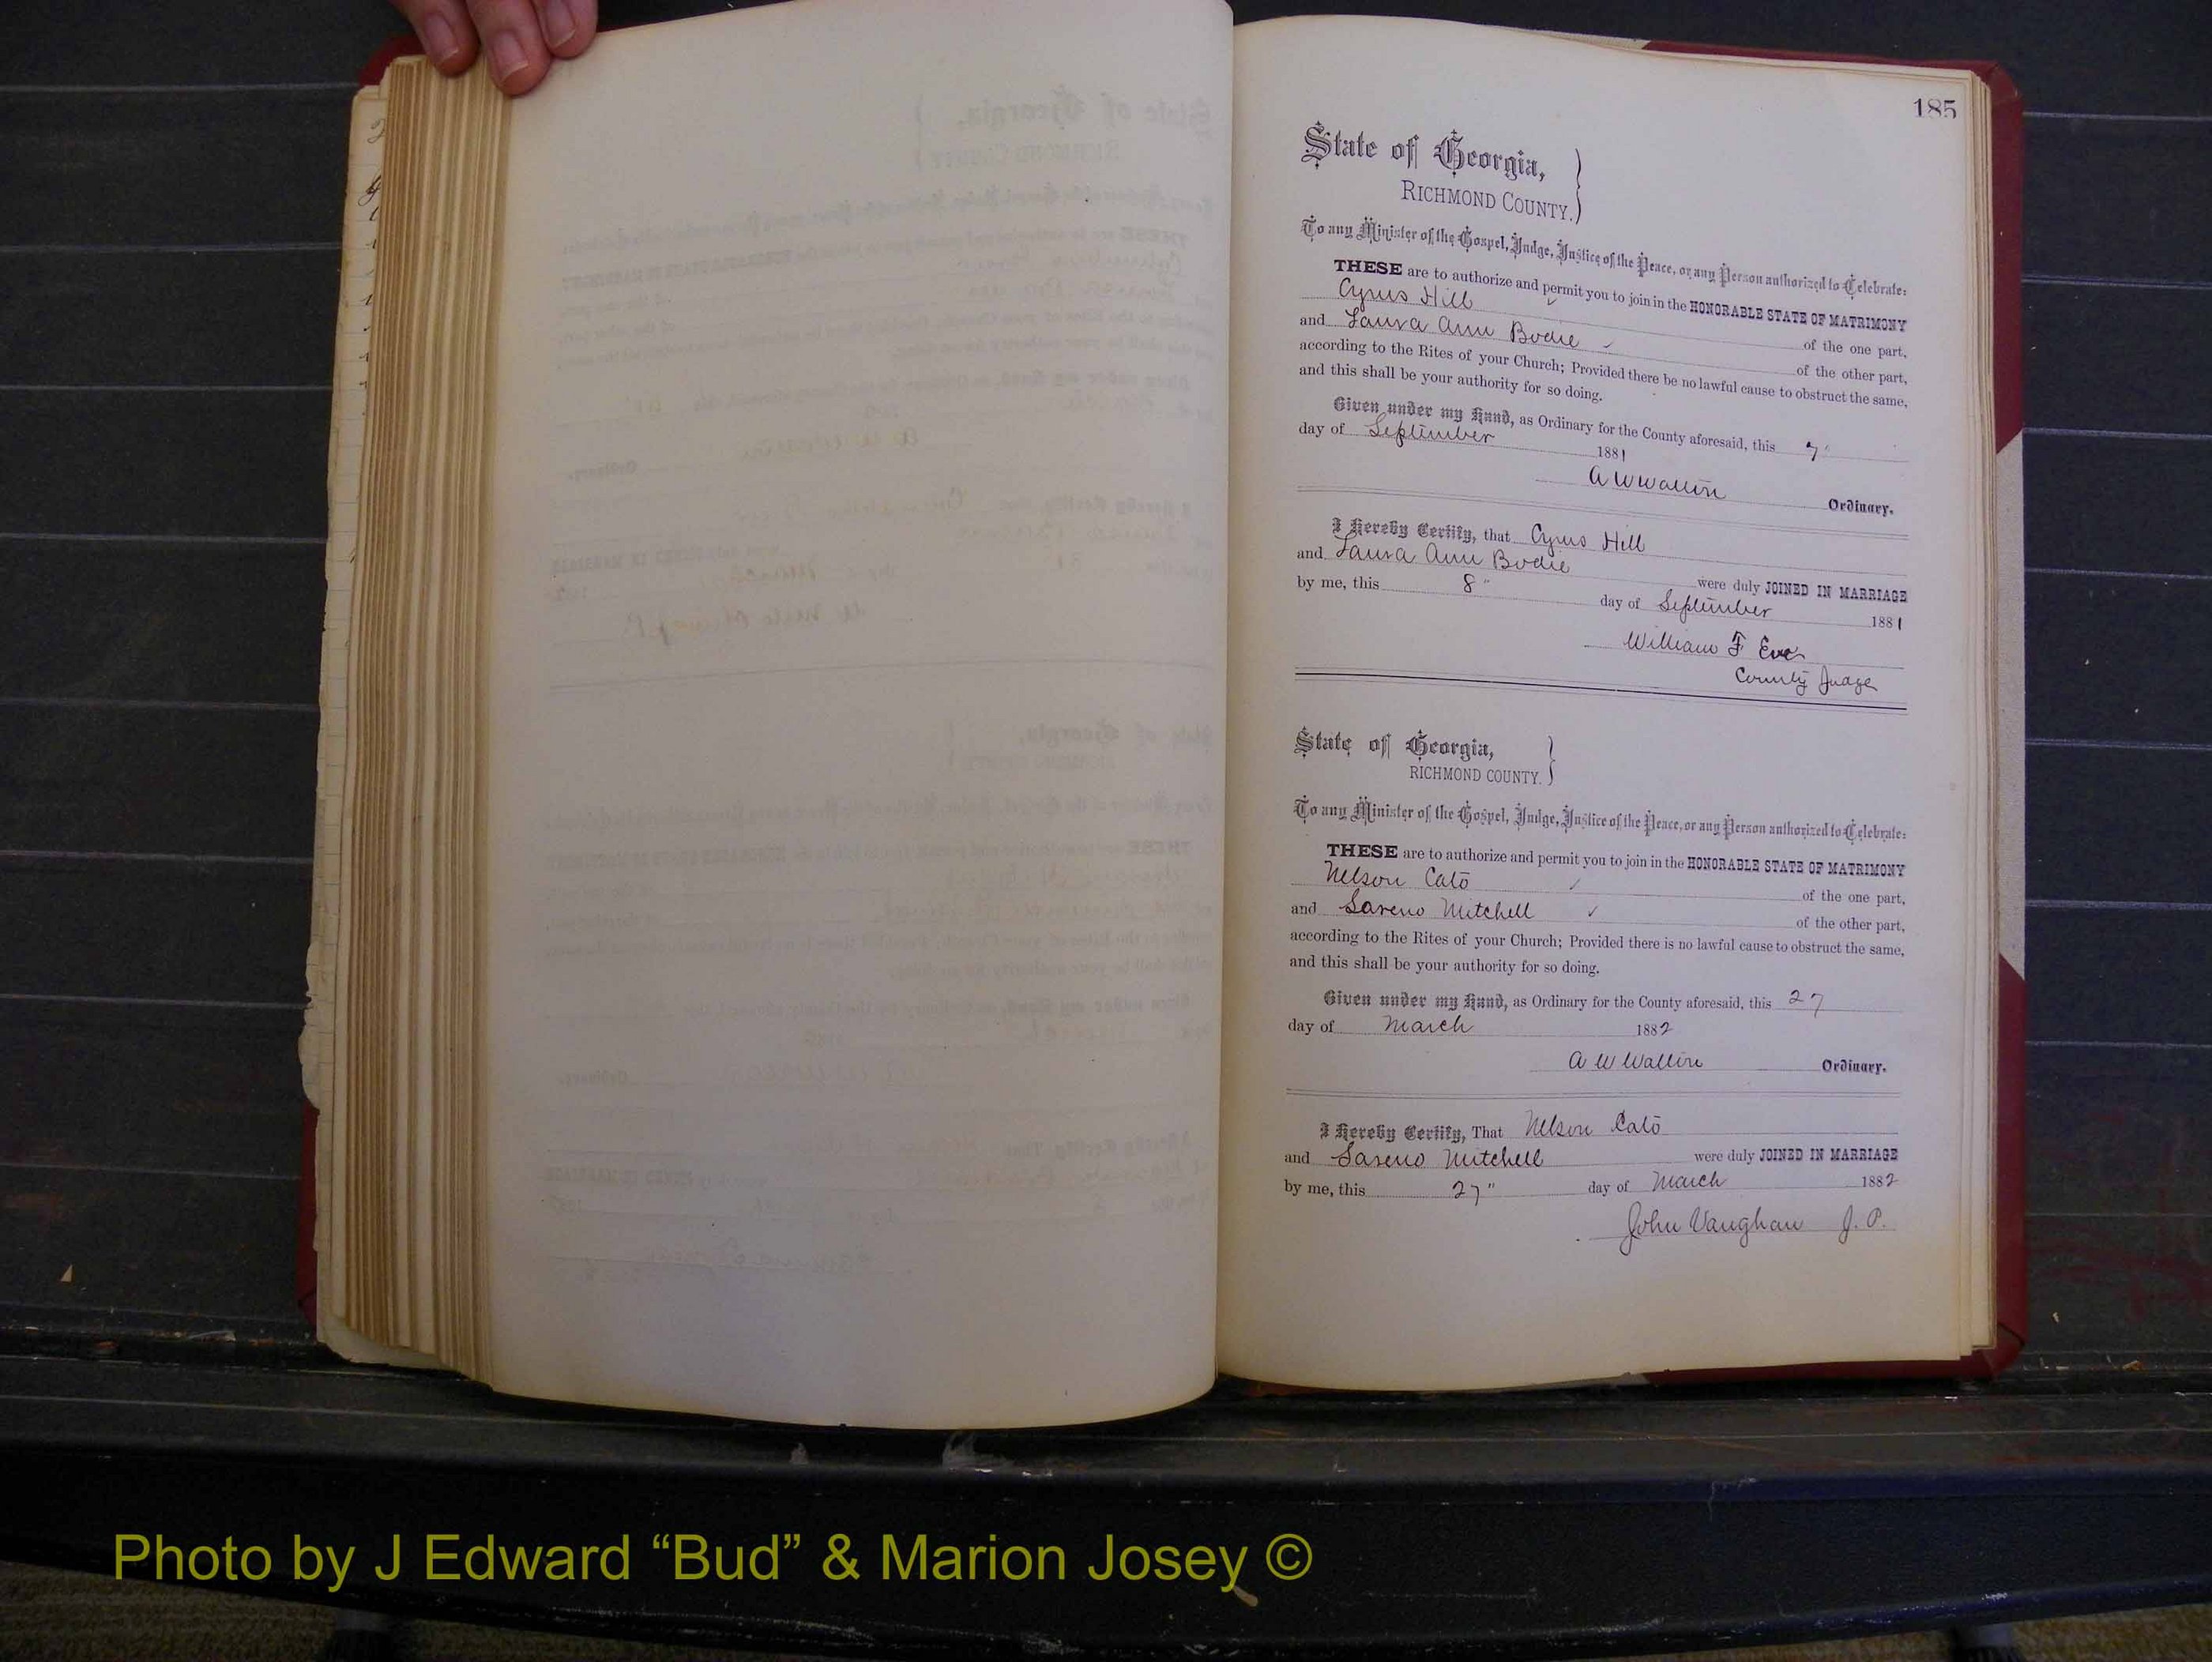 185
State of Georgia,
RICHMOND COUNTY.
To any Minister of the Gospel, Judge, Justice of the Peace, or any Person authorized to Celebrate:
THESE are to authorize and permit you to join in the HONORABLE STATE OF MATRIMONY
Cyrus Hill of the one part,
and Laura Ann Bodie of the other part,
according to the Rites of your Church; Provided there be no lawful cause to obstruct the same,
and this shall be your authority for so doing.
Given under my Hand, as Ordinary for the County aforesaid, this 7"
day of September 1881
A W Ordinary.
I Hereby Certify, that Cyrus Hill
and Laura Ann Bodie were duly JOINED IN MARRIAGE
by me, this 8" day of September 1881
William F Eve
County Judge
State of Georgia,
RICHMOND COUNTY.
To any Minister of the Gospel, Judge, Justice of the Peace, or any Person authorized to Celebrate:
THESE are to authorize and permit you to join in the HONORABLE STATE OF MATRIMONY
Nelson Cato of the one part,
and Sareno Mitchell of the other part,
according to the Rites of your Church; Provided there is no lawful cause to obstruct the same,
and this shall be your authority for so doing.
Given under my Hand, as Ordinary for the County aforesaid, this 27
day of March 1882
A W Ordinary.
I Hereby Certify, That Nelson Cato
and Sareno Mitchell were duly JOINED IN MARRIAGE
by me, this 27" day of March 1882
John Vaughan J. P.
Photo by J Edward “Bud” & Marion Josey ©